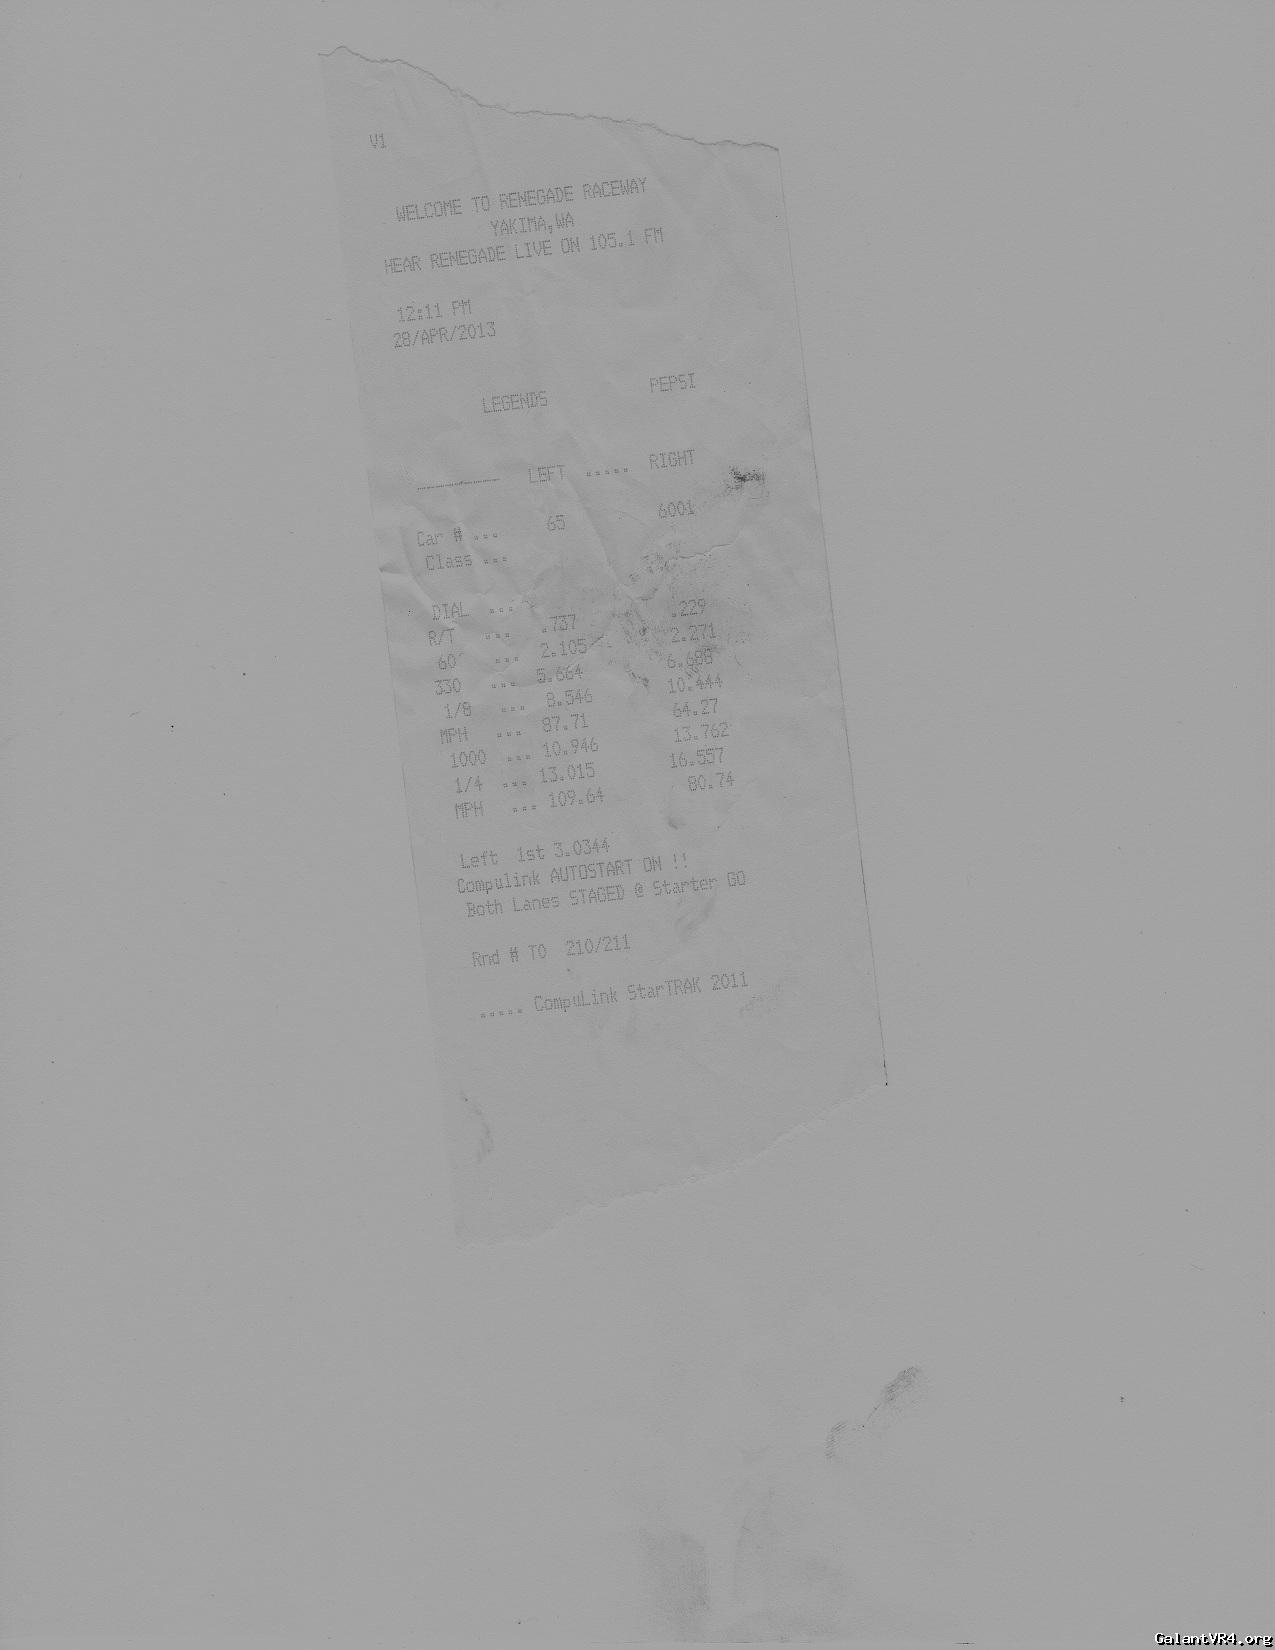 V1
WELCOME TO RENEGADE RACEWAY
YAKIMA,WA
HEAR RENEGADE LIVE ON 105.1 FM
12:11 PM
28/APR/2013
LEGENDS PEPSI
________ LEFT ..... RIGHT
Car # ... 65 6001
Class ...
DIAL ...
R/T ... .737 .229
60' ... 2.105 2.271
330 ... 5.664 6.688
1/8 ... 8.546 10.444
MPH ... 87.71 64.27
1000 ... 10.946 13.762
1/4 ... 13.015 16.557
MPH ... 109.64 80.74
Left 1st 3.0344
Compulink AUTOSTART ON !!
Both Lanes STAGED @ Starter GO
Rnd # TO 210/211
..... CompuLink StarTRAK 2011
GalantVR4.org